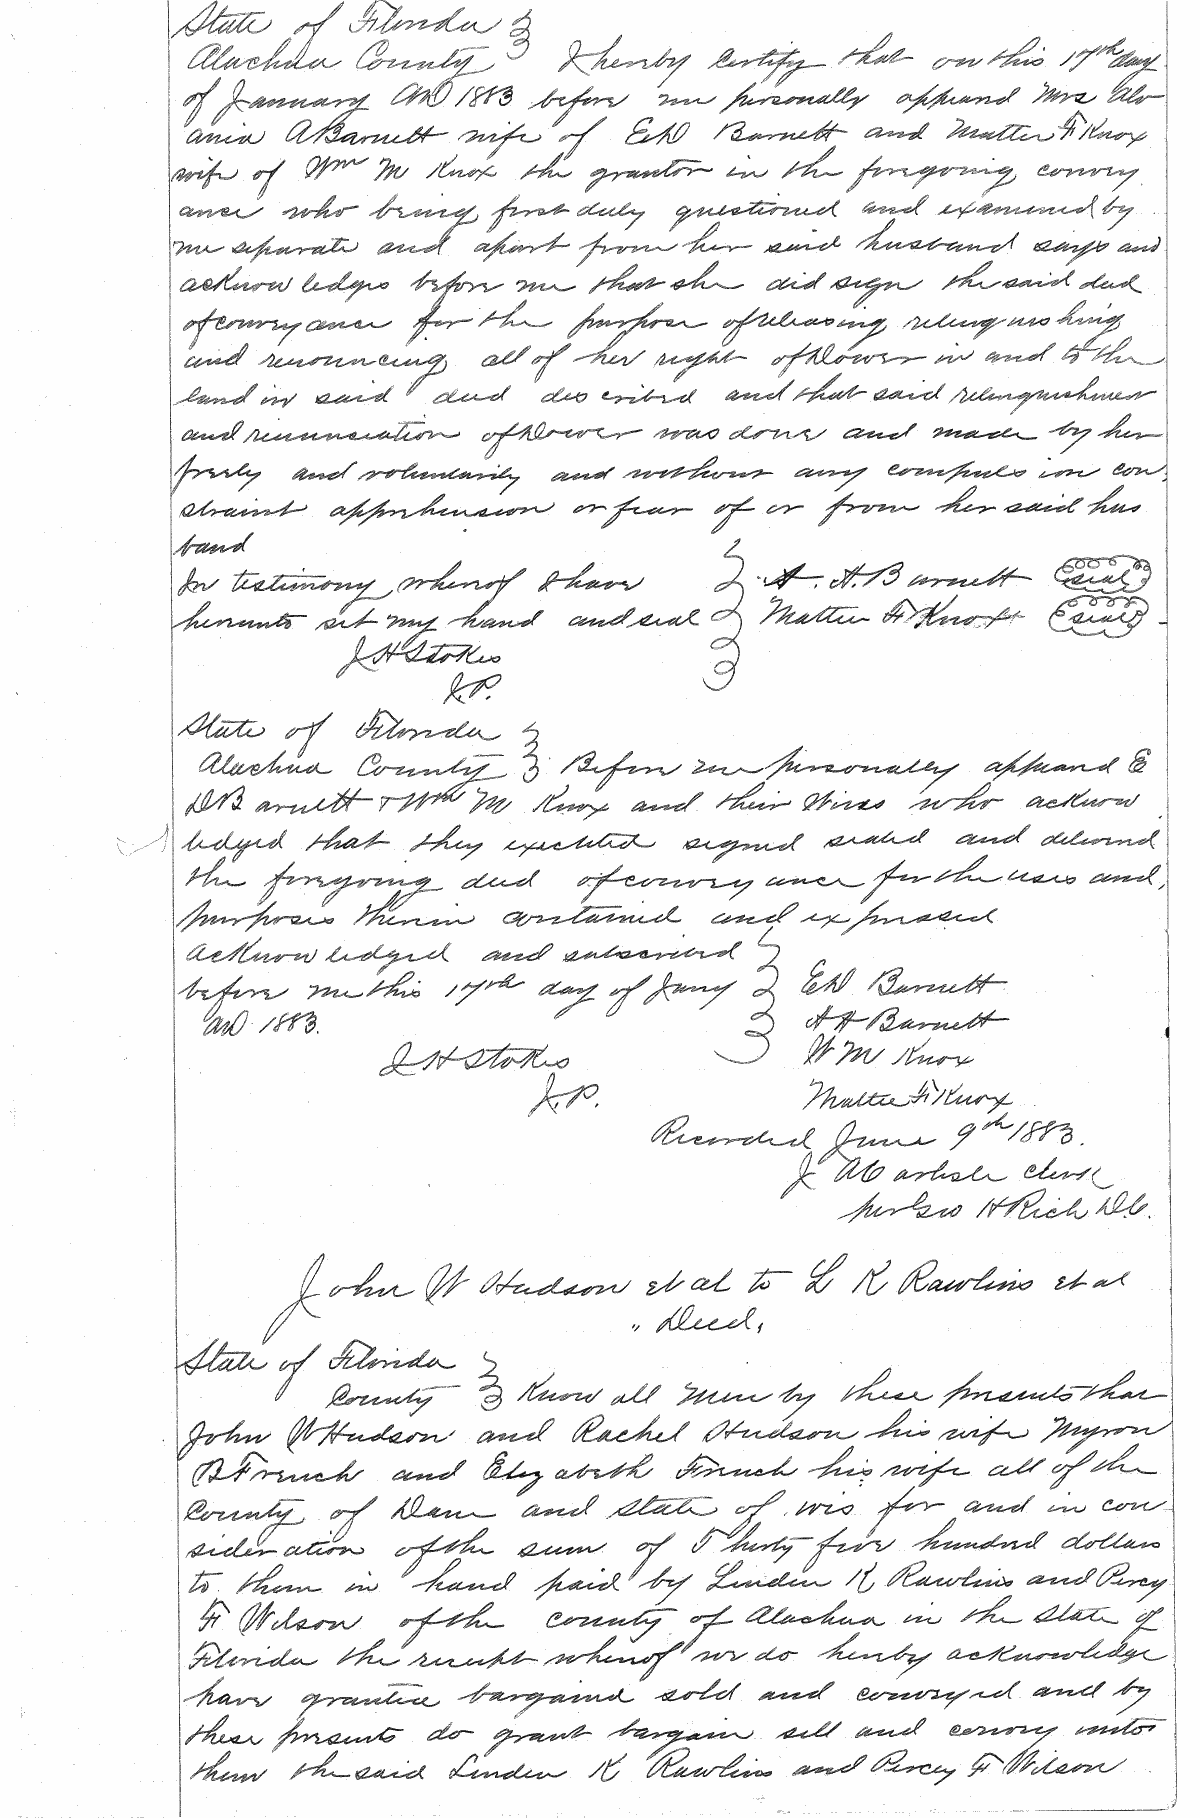 State of Florida
Alachua County I hereby Certify that on this 17th day
of January AD 1883 before me personally appeared Mrs Alv
ania A Barnett wife of E D Barnett and Mattie F Knox
wife of Wm M Knox the grantor in the foregoing convey
ance who being first duly questioned and examined by
me separate and apart from her said husband says and
acknowledges before me that she did sign the said deed
of conveyance for the purpose of releasing relinquishing
and renouncing all of her right of Dower in and to the
land in said deed described and that said relinquishment
and renunciation of Dower was done and made by her
freely and voluntarily and without any compulsion con
straint apprehension or fear of or from her said hus
band
In testimony whereof I have A. A. Barnett seal
hereunto set my hand and seal Mattie F Knox seal
J H Stokes
J.P.
State of Florida
Alachua County Before me personally appeared E
D Barnett & Wm M Knox and their Wives who acknow
ledged that they executed signed sealed and delivered
the foregoing deed of conveyance for the uses and
purposes therein contained and expressed
Acknowledged and subscribed
before me this 17th day of Jany E D Barnett
AD 1883. A A Barnett
J H Stokes W M Knox
J.P. Mattie F Knox
Recorded June 9th 1883.
J A Carlisle Clerk
per Geo H Rich D.C.
John W Hudson et al to L K Rawlins et al
" Deed,
State of Florida
County Know all Men by these presents that
John W Hudson and Rachel Hudson his wife Myron
B French and Elizabeth French his wife all of the
County of Dane and State of wis for and in con
sideration of the sum of Thirty five hundred dollars
to them in hand paid by Linden K Rawlins and Percy
F Wilson of the county of Alachua in the State of
Florida the receipt whereof we do hereby acknowledge
have granted bargained sold and conveyed and by
these presents do grant bargain sell and convey unto
them the said Linden K Rawlins and Percey F Wilson